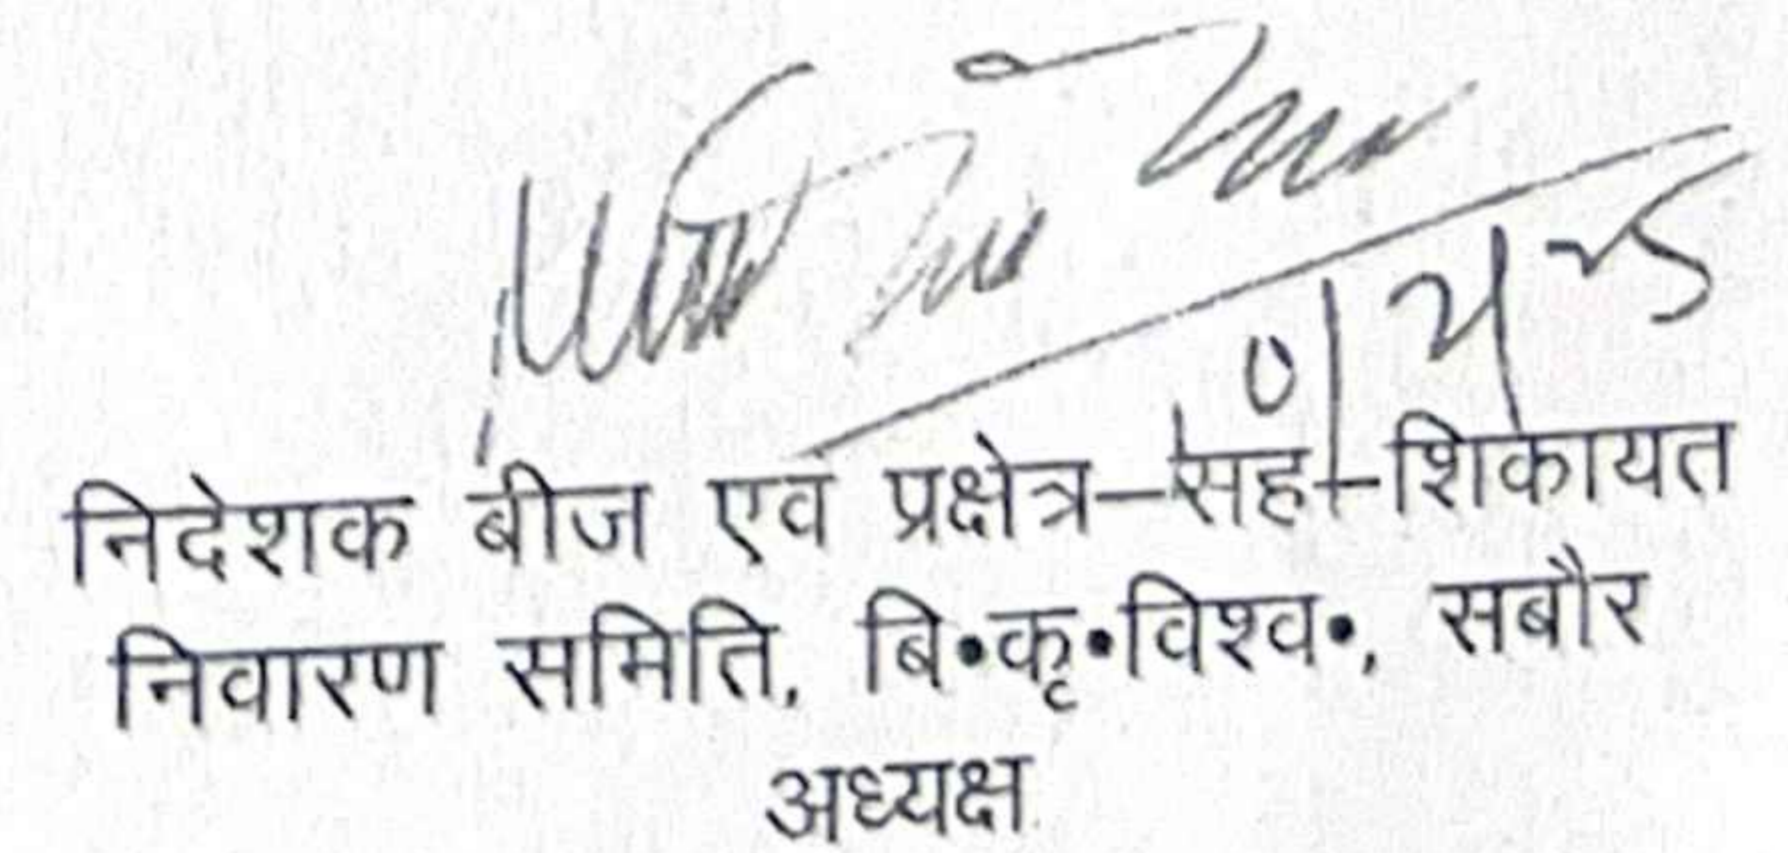 निदेशक बीज एवं प्रक्षेत्र–सह–शिकायत
निवारण समिति, बि•कृ•विश्व•, सबौर
अध्यक्ष